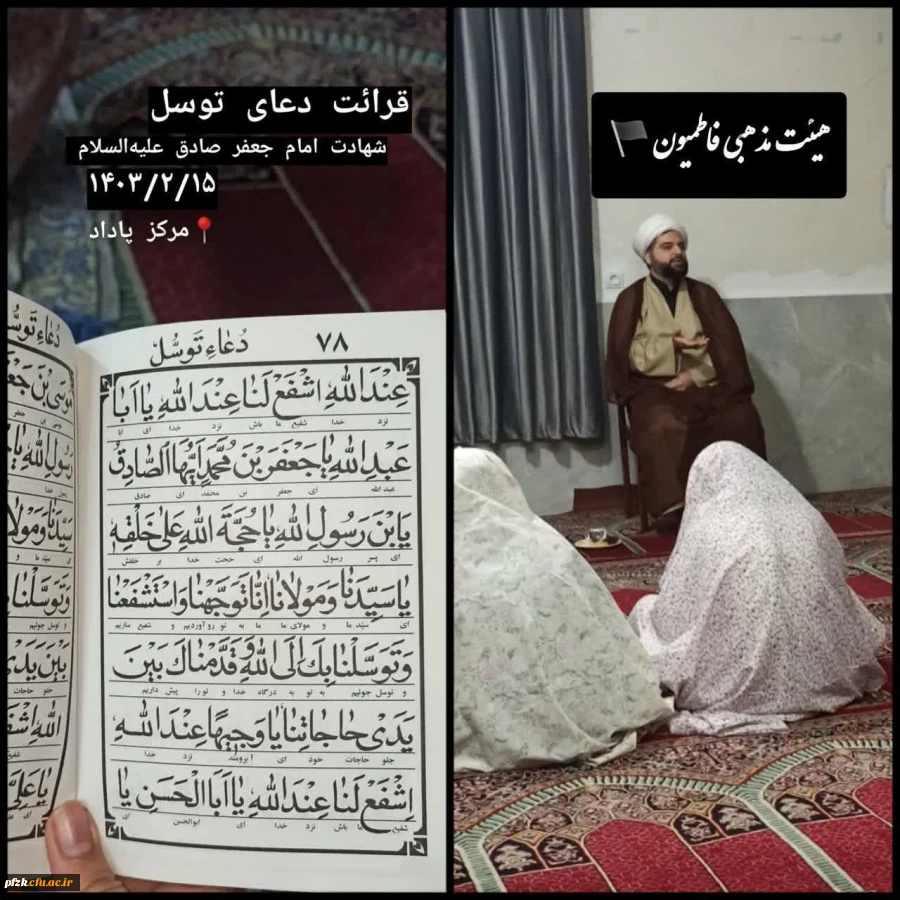 قرائت دعای توسل
شهادت امام جعفر صادق علیه‌السلام
۱۴۰۳/۲/۱۵
مرکز پاداد
هیئت مذهبی فاطمیون
دُعاءِ تَوَسُّل
۷۸
عِنْدَ اللّٰهِ اِشْفَعْ لَنا عِنْدَ اللّٰهِ یا اَبا
نزد خدا شفیع ما باش نزد خدا ای ابا
عَبْدِ اللّٰهِ یا جَعْفَرَ بْنَ مُحَمَّدٍ اَیُّهَا الصّادِقُ
عبدالله ای جعفر بن محمّد ای صادق
یَا بْنَ رَسُولِ اللّٰهِ یا حُجَّةَ اللّٰهِ عَلیٰ خَلْقِهِ
ای پسر رسول الله ای حجت خدا بر خلقش
یا سَیِّدَنا وَ مَوْلانا اِنّا تَوَجَّهْنا وَاسْتَشْفَعْنا
ای سیّد ما و مولای ما ما به تو رو آوردیم و شفیع سازیم
وَ تَوَسَّلْنا بِکَ اِلَی اللّٰهِ وَ قَدَّمْناکَ بَیْنَ
و توسل جوئیم به تو به درگاه خدا و تو را پیش داریم
یَدَیْ حاجاتِنا یا وَجیهًا عِنْدَ اللّٰهِ
جلو حاجات خود ای آبرومند نزد خدا
اِشْفَعْ لَنا عِنْدَ اللّٰهِ یا اَبَا الْحَسَنِ یا
شفیع ما باش نزد خدا ای ابوالحسن ای
pfzk.cfu.ac.ir